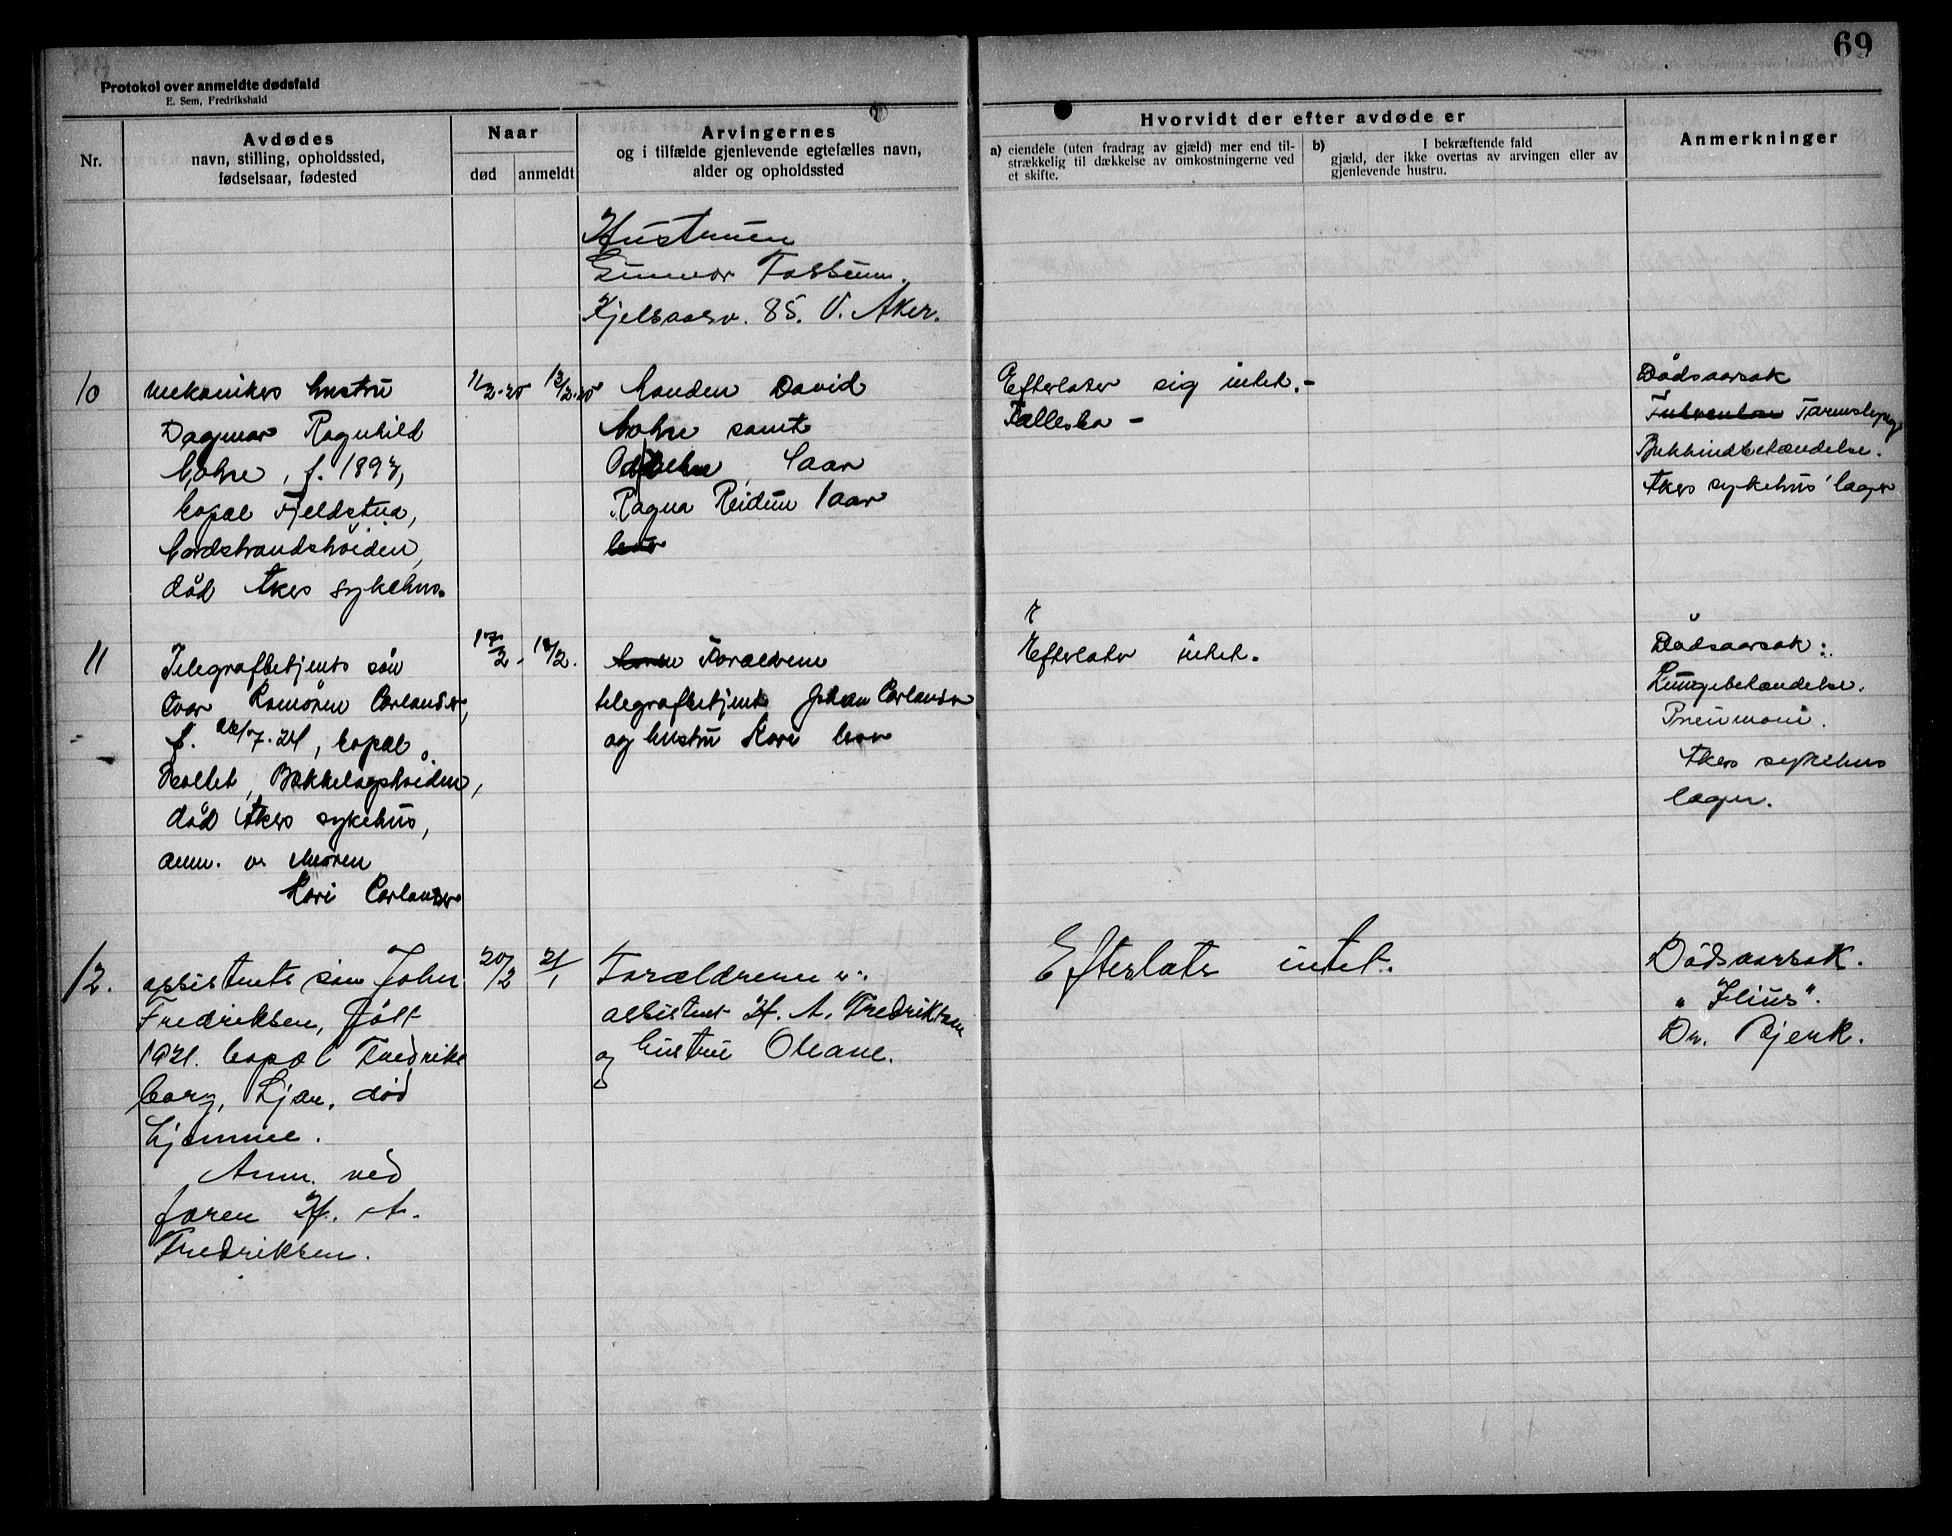 69
Protokol over anmeldte dødsfald
E. Sem, Fredrikshald
Nr.
Avdødes
navn, stilling, opholdssted,
fødselsaar, fødested
Naar
død
anmeldt
Arvingernes
og i tilfælde gjenlevende egtefælles navn,
alder og opholdssted
Hvorvidt der efter avdøde er
a) eiendele (uten fradrag av gjæld) mer end til-
strækkelig til dækkelse av omkostningerne ved
et skifte.
b) I bekræftende fald
gjæld, der ikke overtas av arvingen eller av
gjenlevende hustru.
Anmerkninger
Hustruen
Gunvor Fossum.
Kjelsaasv. 85. V. Aker.
10
mekanikers hustru
Dagmar Ragnhild
f. 1897,
bopæl Fjeldstua,
Nordstrandshöiden,
död Akers sykehus.
11/2-25
13/2-25
Manden David
samt
5 aar
Ragna Reidun 1 aar
Efterlater sig intet.-
Fællesbo -
Dödsaarsak
Bukhindbetændelse.
Akers sykehus' læger
11
Telegrafbetjents sön
Ivar
f. 22/7.24, bopæl
Bækkelagshöiden,
död Akers sykehus,
anm. v. moren
Kari
17/2-
18/2.
Forældrene
telegrafbetjent Johan
og hustru Kari
Efterlater intet.
Dödsaarsak:
Lungebetændelse.
Pneumoni.
Akers sykehus
læger.
12.
assistents sön John
Fredriksen, födt
1921. bopæl Fredriks
borg, Ljan, död
hjemme.
Anm. ved
faren H. A.
Fredriksen.
20/2
21/1
Forældrene
assistent H. A. Fredriksen
og hustru
Efterlater intet.
Dödsaarsak.
"Ilius".
Dr. Bjerk.